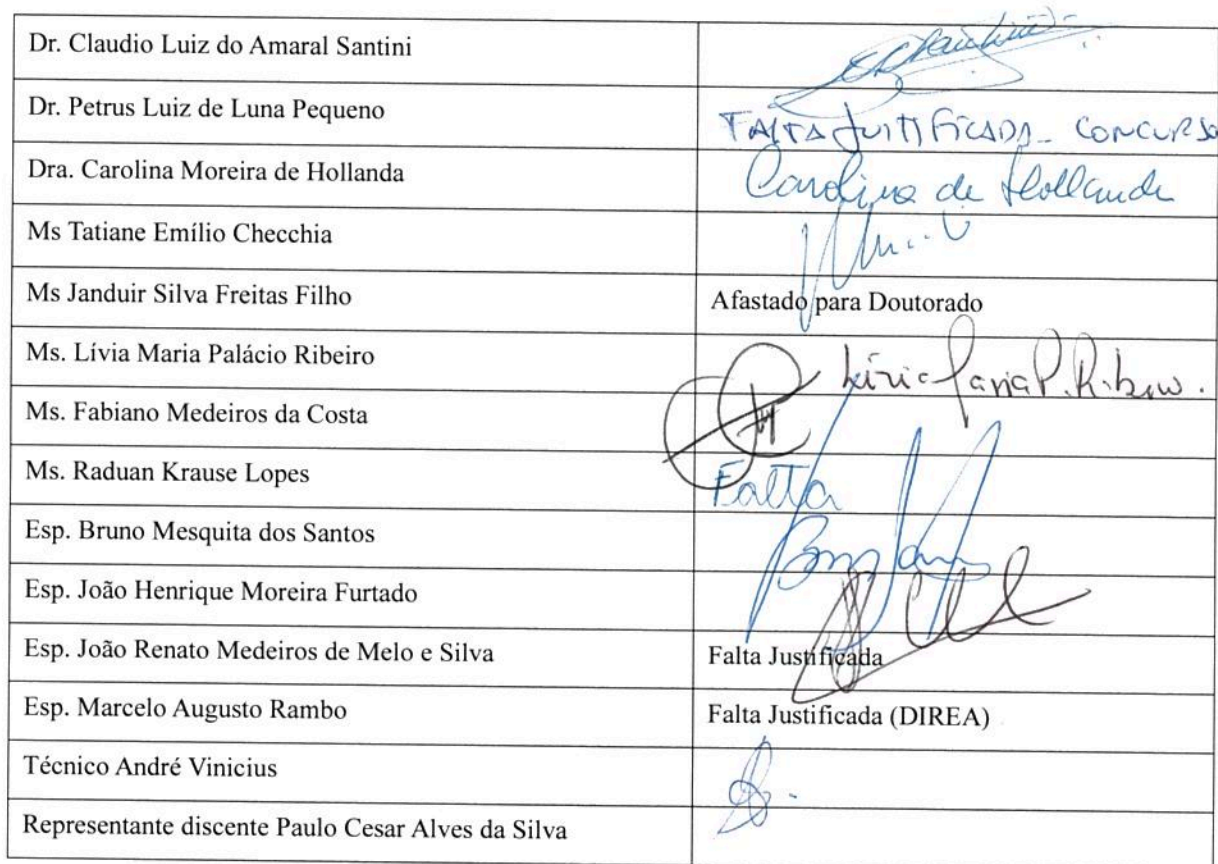 Dr. Claudio Luiz do Amaral Santini
Dr. Petrus Luiz de Luna Pequeno
FALTA JUSTIFICADA - CONCURSO
Dra. Carolina Moreira de Hollanda
Carolina de Hollanda
Ms Tatiane Emílio Checchia
Ms Janduir Silva Freitas Filho
Afastado para Doutorado
Ms. Lívia Maria Palácio Ribeiro
Lívia Maria P. Ribeiro.
Ms. Fabiano Medeiros da Costa
Ms. Raduan Krause Lopes
Falta
Esp. Bruno Mesquita dos Santos
Esp. João Henrique Moreira Furtado
Esp. João Renato Medeiros de Melo e Silva
Falta Justificada
Esp. Marcelo Augusto Rambo
Falta Justificada (DIREA)
Técnico André Vinicius
Representante discente Paulo Cesar Alves da Silva